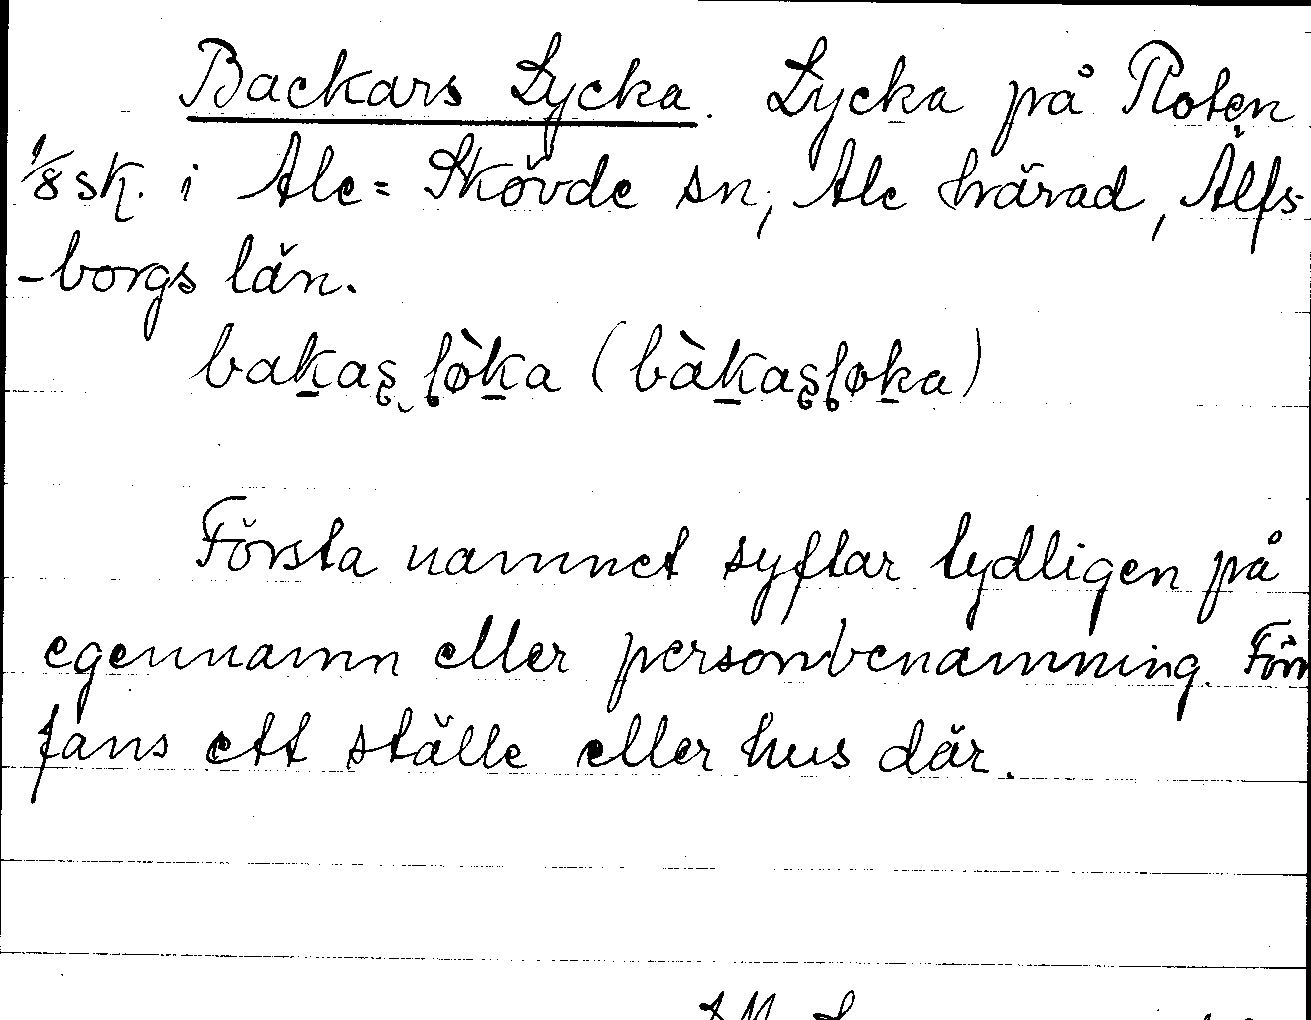 Backars Lycka. Lycka på Roten
1/8 sk. i Ale=Skövde sn, Ale härad, Älfs-
-borgs län.
bakas løka (bàkasløka)
Första namnet syftar tydligen på
egennamn eller personbenämning. Förr
fans ett ställe eller hus där.